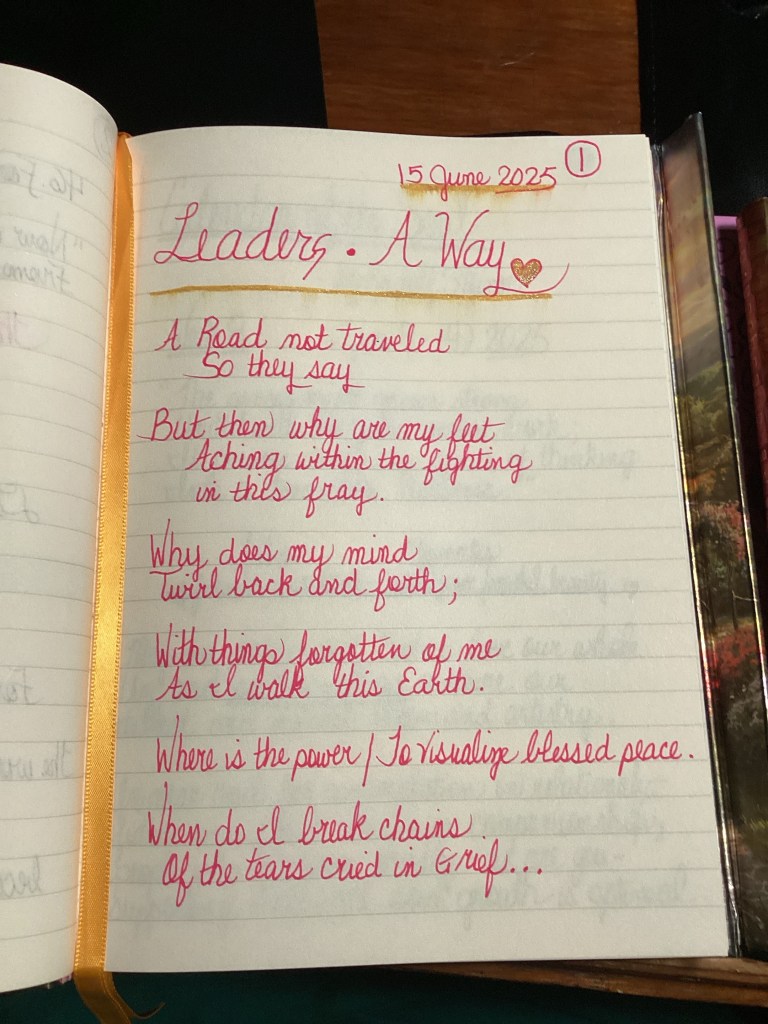 15 June 2025 1
Leaders. A Way
A Road not traveled
So they say
But then why are my feet
Aching within the fighting
in this fray.
Why does my mind
Twirl back and forth;
With things forgotten of me
As I walk this Earth.
Where is the power / To visualize blessed peace.
When do I break chains
Of the tears cried in Grief...